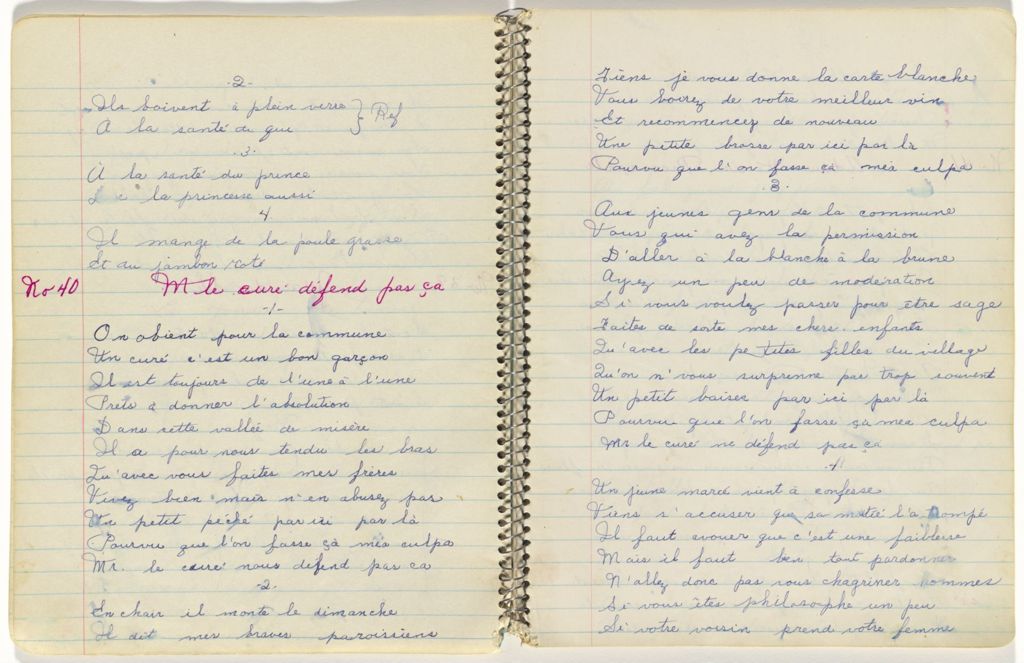 -2-
Ils boivent à plein verre } Ref
A la santé du gui
-3-
À la santé du prince
la princesse aussi
4
Il mange de la poule grasse
Et du jambon roti
No 40 M le curé défend pas ça
-1-
On obient pour la commune
Un curé c'est un bon garçon
Il est toujours de l'une à l'une
Prets à donner l'absolution
Dans cette vallée de misère
Il a pour nous tendu les bras
Qu'avec vous faites mes frères
Vivez bien mais n'en abusez pas
Un petit péché par ici par là
Pourvu que l'on fasse ça méa culpa
Mr. le curé nous défend pas ca
-2-
En chair il monte le dimanche
Il dit mes braves paroissiens
Tiens je vous donne la carte blanche
Vous boirez de votre meilleur vin
Et recommencez de nouveau
Une petite brosse par ici par là
Pourvu que l'on fasse ça méa culpa
3.
Aux jeunes gens de la commune
Vous qui avez la permission
D'aller à la blanche à la brune
Ayez un peu de modération
Si vous voulez passer pour être sage
Faites de sorte mes chers enfants
Qu'avec les petites filles du village
Qu'on n'vous surprenne pas trop souvent
Un petit baiser par ici par là
Pourvu que l'on fasse ça mea culpa
Mr le curé ne défend pas ça
-4-
Un jeune marié vient à confesse
Viens s'accuser que sa moitié l'a trompé
Il faut avouer que c'est une faiblesse
Mais il faut ben tout pardonner
N'allez donc pas vous chagriner hommes
Si vous êtes philosophe un peu
Si votre voisin prend votre femme